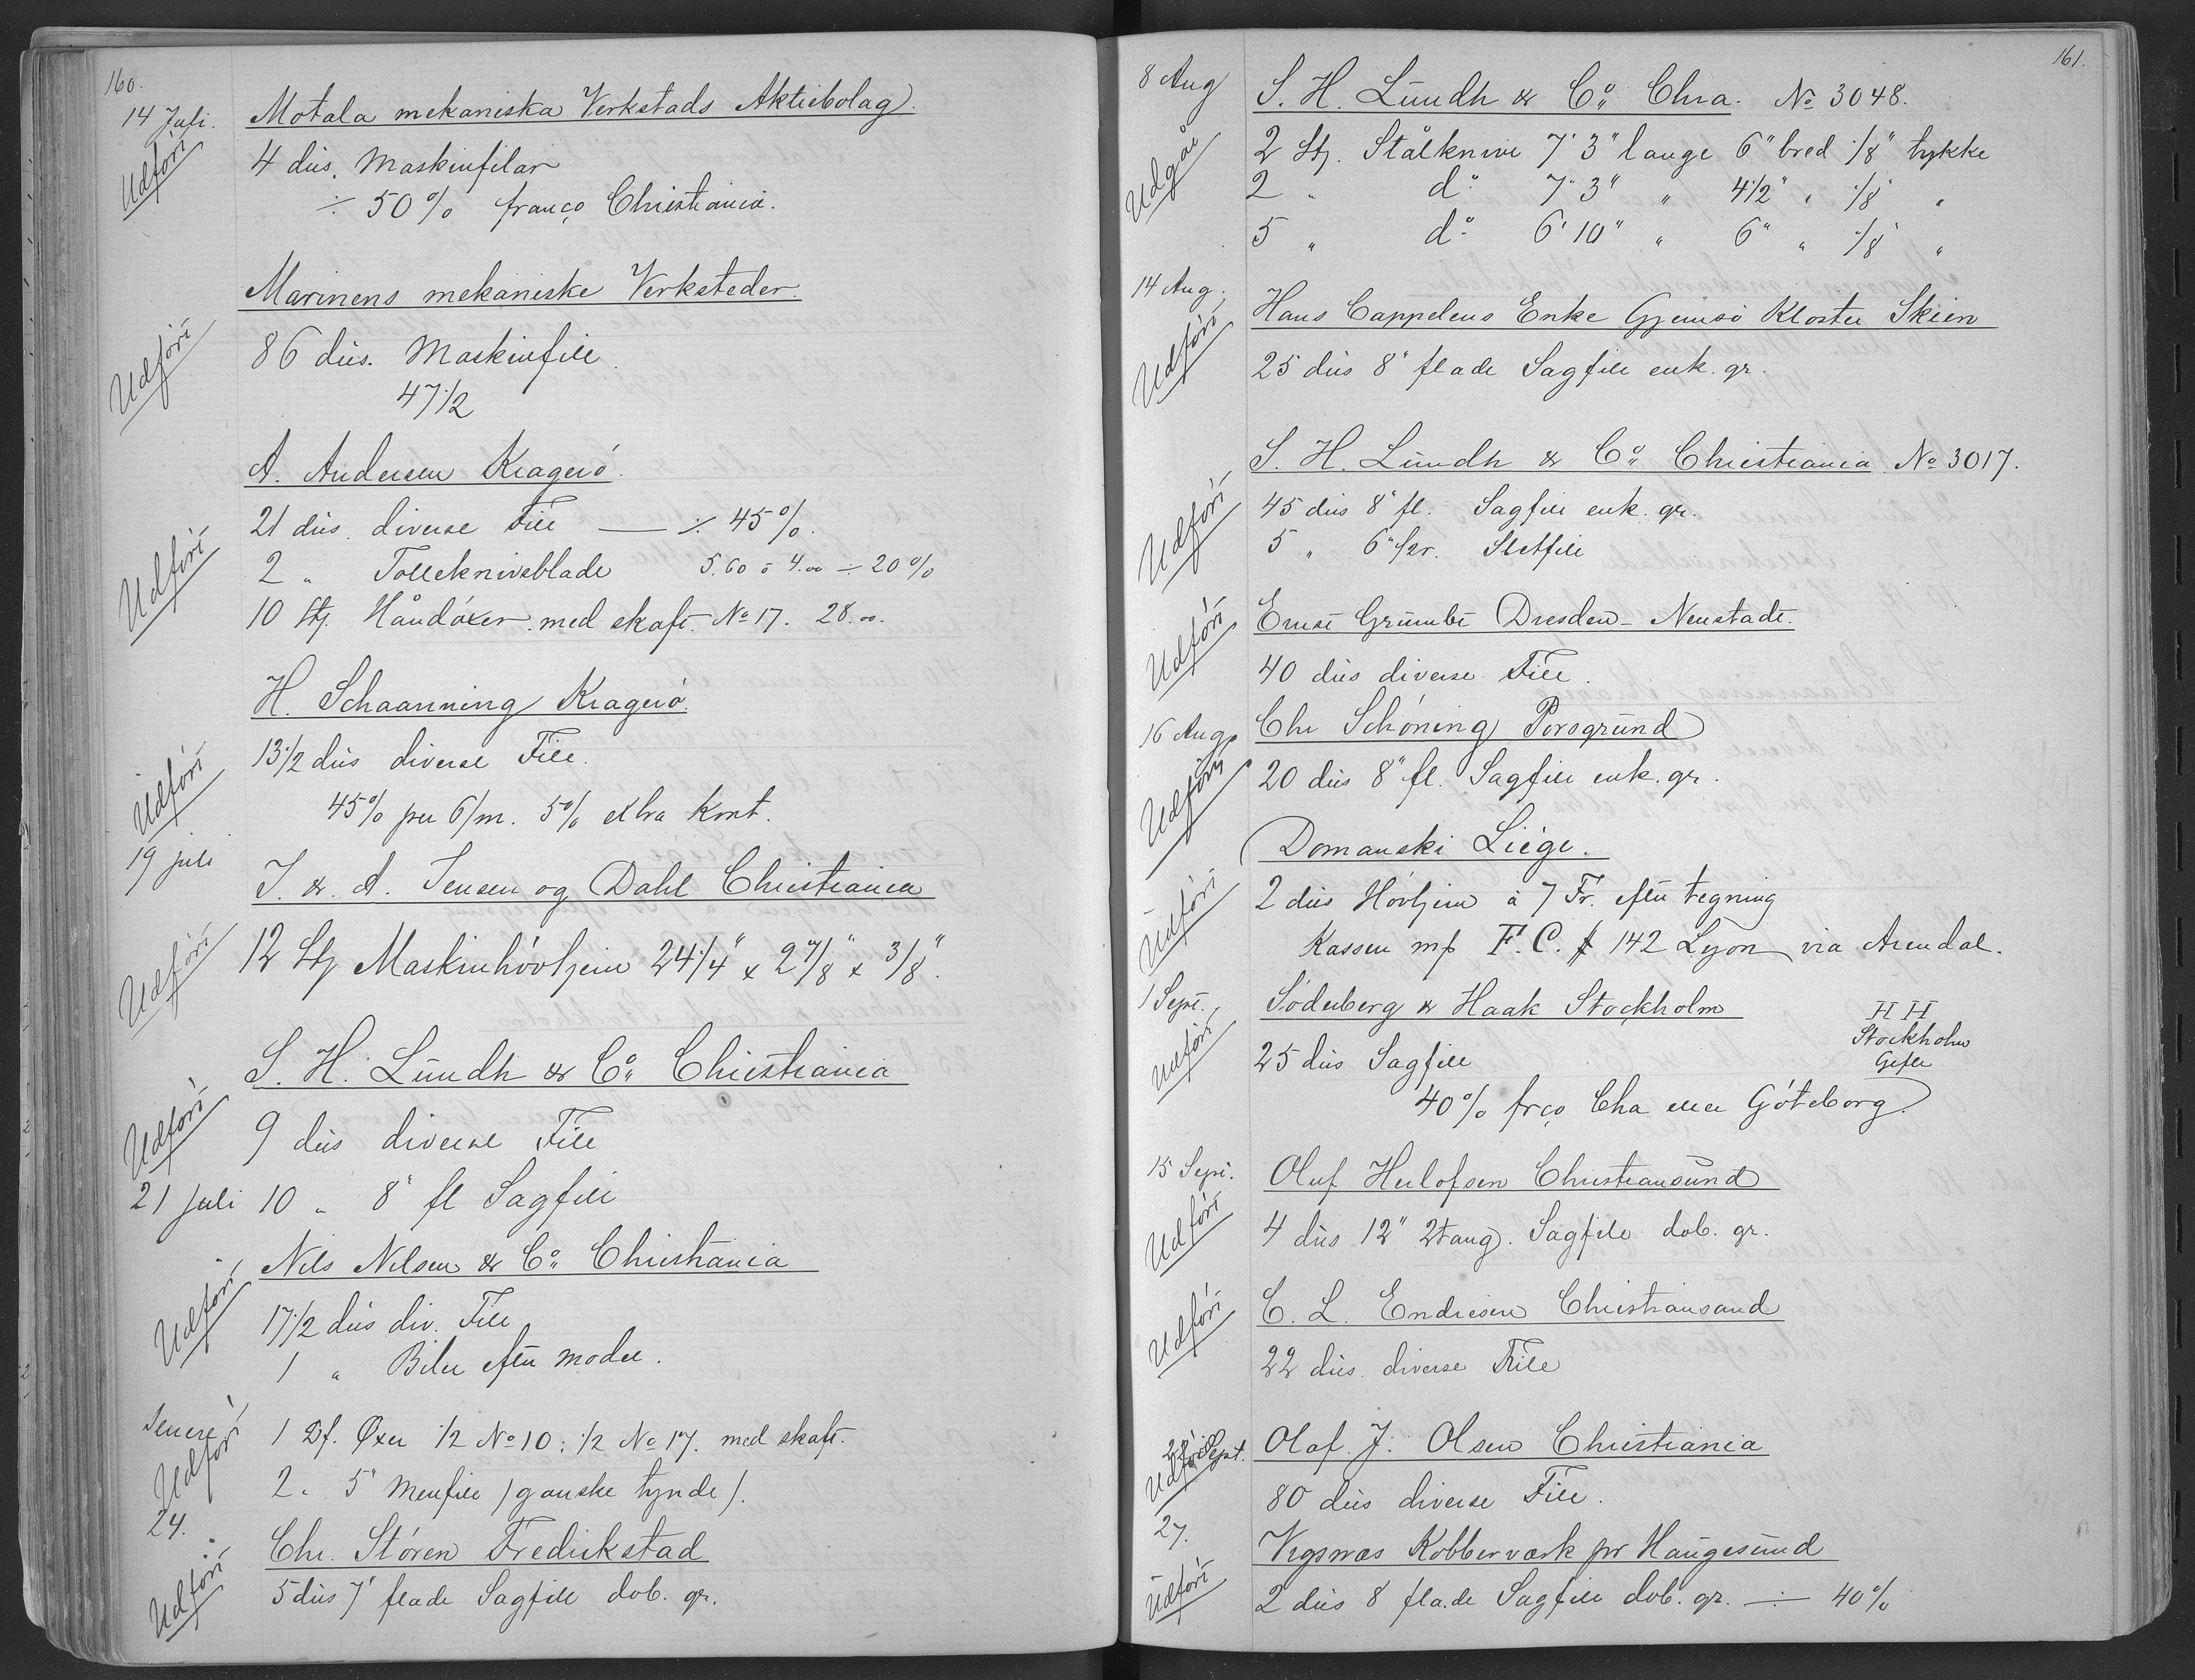 160.
14 Juli.
Motala mekaniska Verkstads Aktiebolag.
Udført
4 düs. Maskinfilar
÷ 50% franco Christiania.
Marinens mekaniske Verksteder.
Udført
86 düs. Maskinfile
47 1/2
A. Andersen Kragerö.
21 düs. diverse File — ÷ 45%.
Udført
2 " Tolleknivsblade 5.60 o 4.00 ÷ 20%
10 Stz. Håndöxer med skaft. No 17. 28.00.
H. Schaanning Kragerö.
13 1/2 düs diverse File.
Udført
45% per 6/m. 5% extra Kont.
19 juli
J. & A. Jensen og Dahl Christiania
Udført
12 Stz Maskinhövljern 24 1/4" x 2 7/8" x 3/8".
S. H. Lündh & Co. Christiania
Udført
9 düs diverse File
21 juli
10 " 8" fl Sagfile
Nils Nilsen & Co. Christiania
Udført
17 1/2 düs div. File
1 " Biler efter model.
Senere
1 Df. Øxer 1/2 No 10; 1/2 No 17. med skaft.
Udført
2 " 5" Menfile /ganske tynde/.
24.
Chr. Stören Fredrikstad
Udført
5 düs 7" flade Sagfile dob. gr.
161.
8 Aug
S. H. Lündh & Co. Chra. No 3048.
Udgår
2 Stz. Stålknive 7' 3" lange 6" bred 1/8" tykke
2 " do 7' 3" " 4 1/2" " 1/8 "
5 " do 6' 10" " 6" " 1/8 "
14 Aug.
Hans Cappelens Enke Gjemsö Kloster Skien
Udført
25 düs 8" flade Sagfile enk. gr.
S. H. Lündh & Co. Christiania No 3017.
Udført
45 düs 8" fl. Sagfile enk. gr.
5 " 6" 1/2r. Sletfile
Udført
Ernst Grümbt Dresden - Neustadt.
40 düs diverse File.
16 Aug
Chr Schöning Porsgründ
Udført
20 düs 8" fl. Sagfile enk. gr.
Domanski Liége.
Udført
2 düs Hövljern à 7 Fr. efter tegning
Kassen mf F. C. # 142 Lyon via Arendal.
1 Sept.
Söderberg & Haak Stockholm
H H
Stockholm
Gefle
Udført
25 düs Sagfile
40% frco Cha eller Göteborg.
15 Sept.
Oluf Herlofsen Christiansünd
Udført
4 düs 12" 2tang. Sagfile dob. gr.
C. L. Endresen Christiansand
Udført
22 düs. diverse File
22 Sept.
Olaf. J. Olsen Christiania
Udført
80 düs diverse File.
27.
Vigsnæs Kobberværk pr Haugesund
Udført
2 düs 8 flade Sagfile dob. gr. ÷ 40%